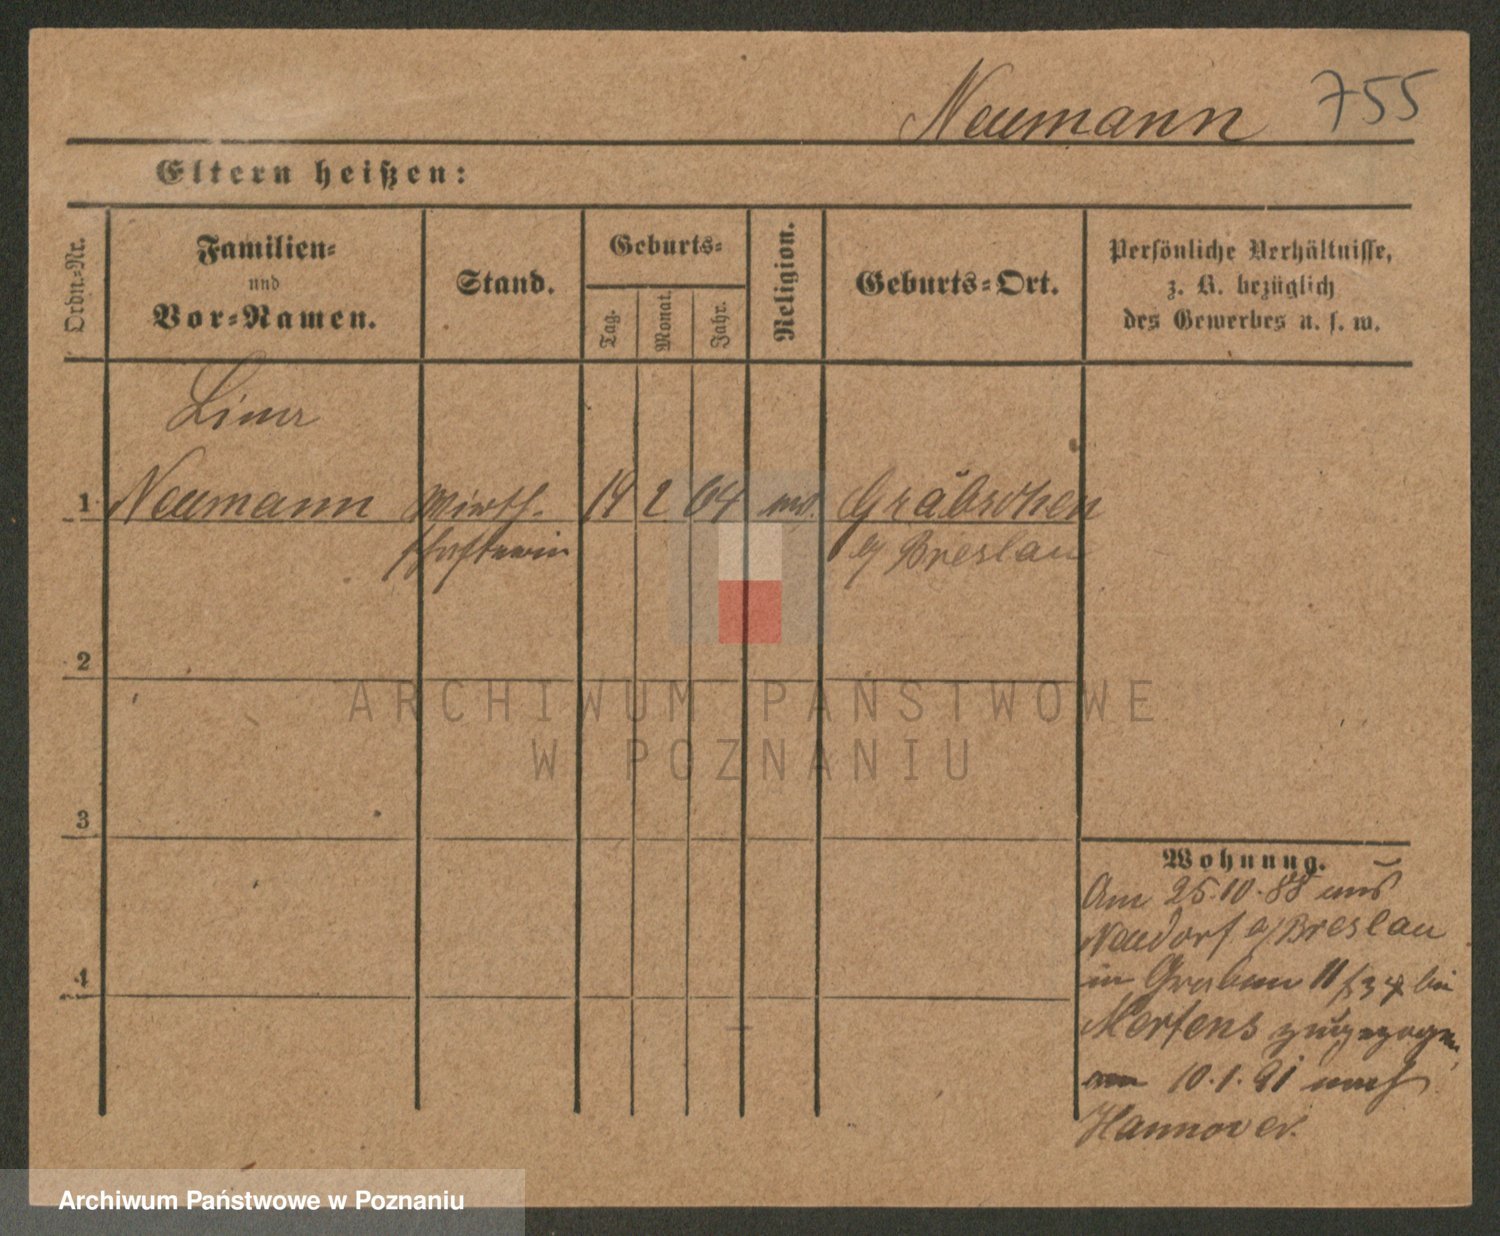 Neumann 755
Eltern heißen:
Ordn.-Nr.
Familien-
und
Vor-Namen.
Stand.
Geburts-
Tag.
Monat.
Jahr.
Religion.
Geburts-Ort.
Persönliche Verhältnisse,
z. B. bezüglich
des Gewerbes u. s. w.
1 Neumann Wirth- 19 2 64 Gräbschen
schafterin b/ Breslau
2
ARCHIWUM PAŃSTWOWE
W POZNANIU
3
4
Wohnung.
Am 25.10.88 aus
Neudorf b/Breslau
in Graben 11 bei
Mertens zugezogen,
10.1.91 nach
Hannover.
Archiwum Państwowe w Poznaniu